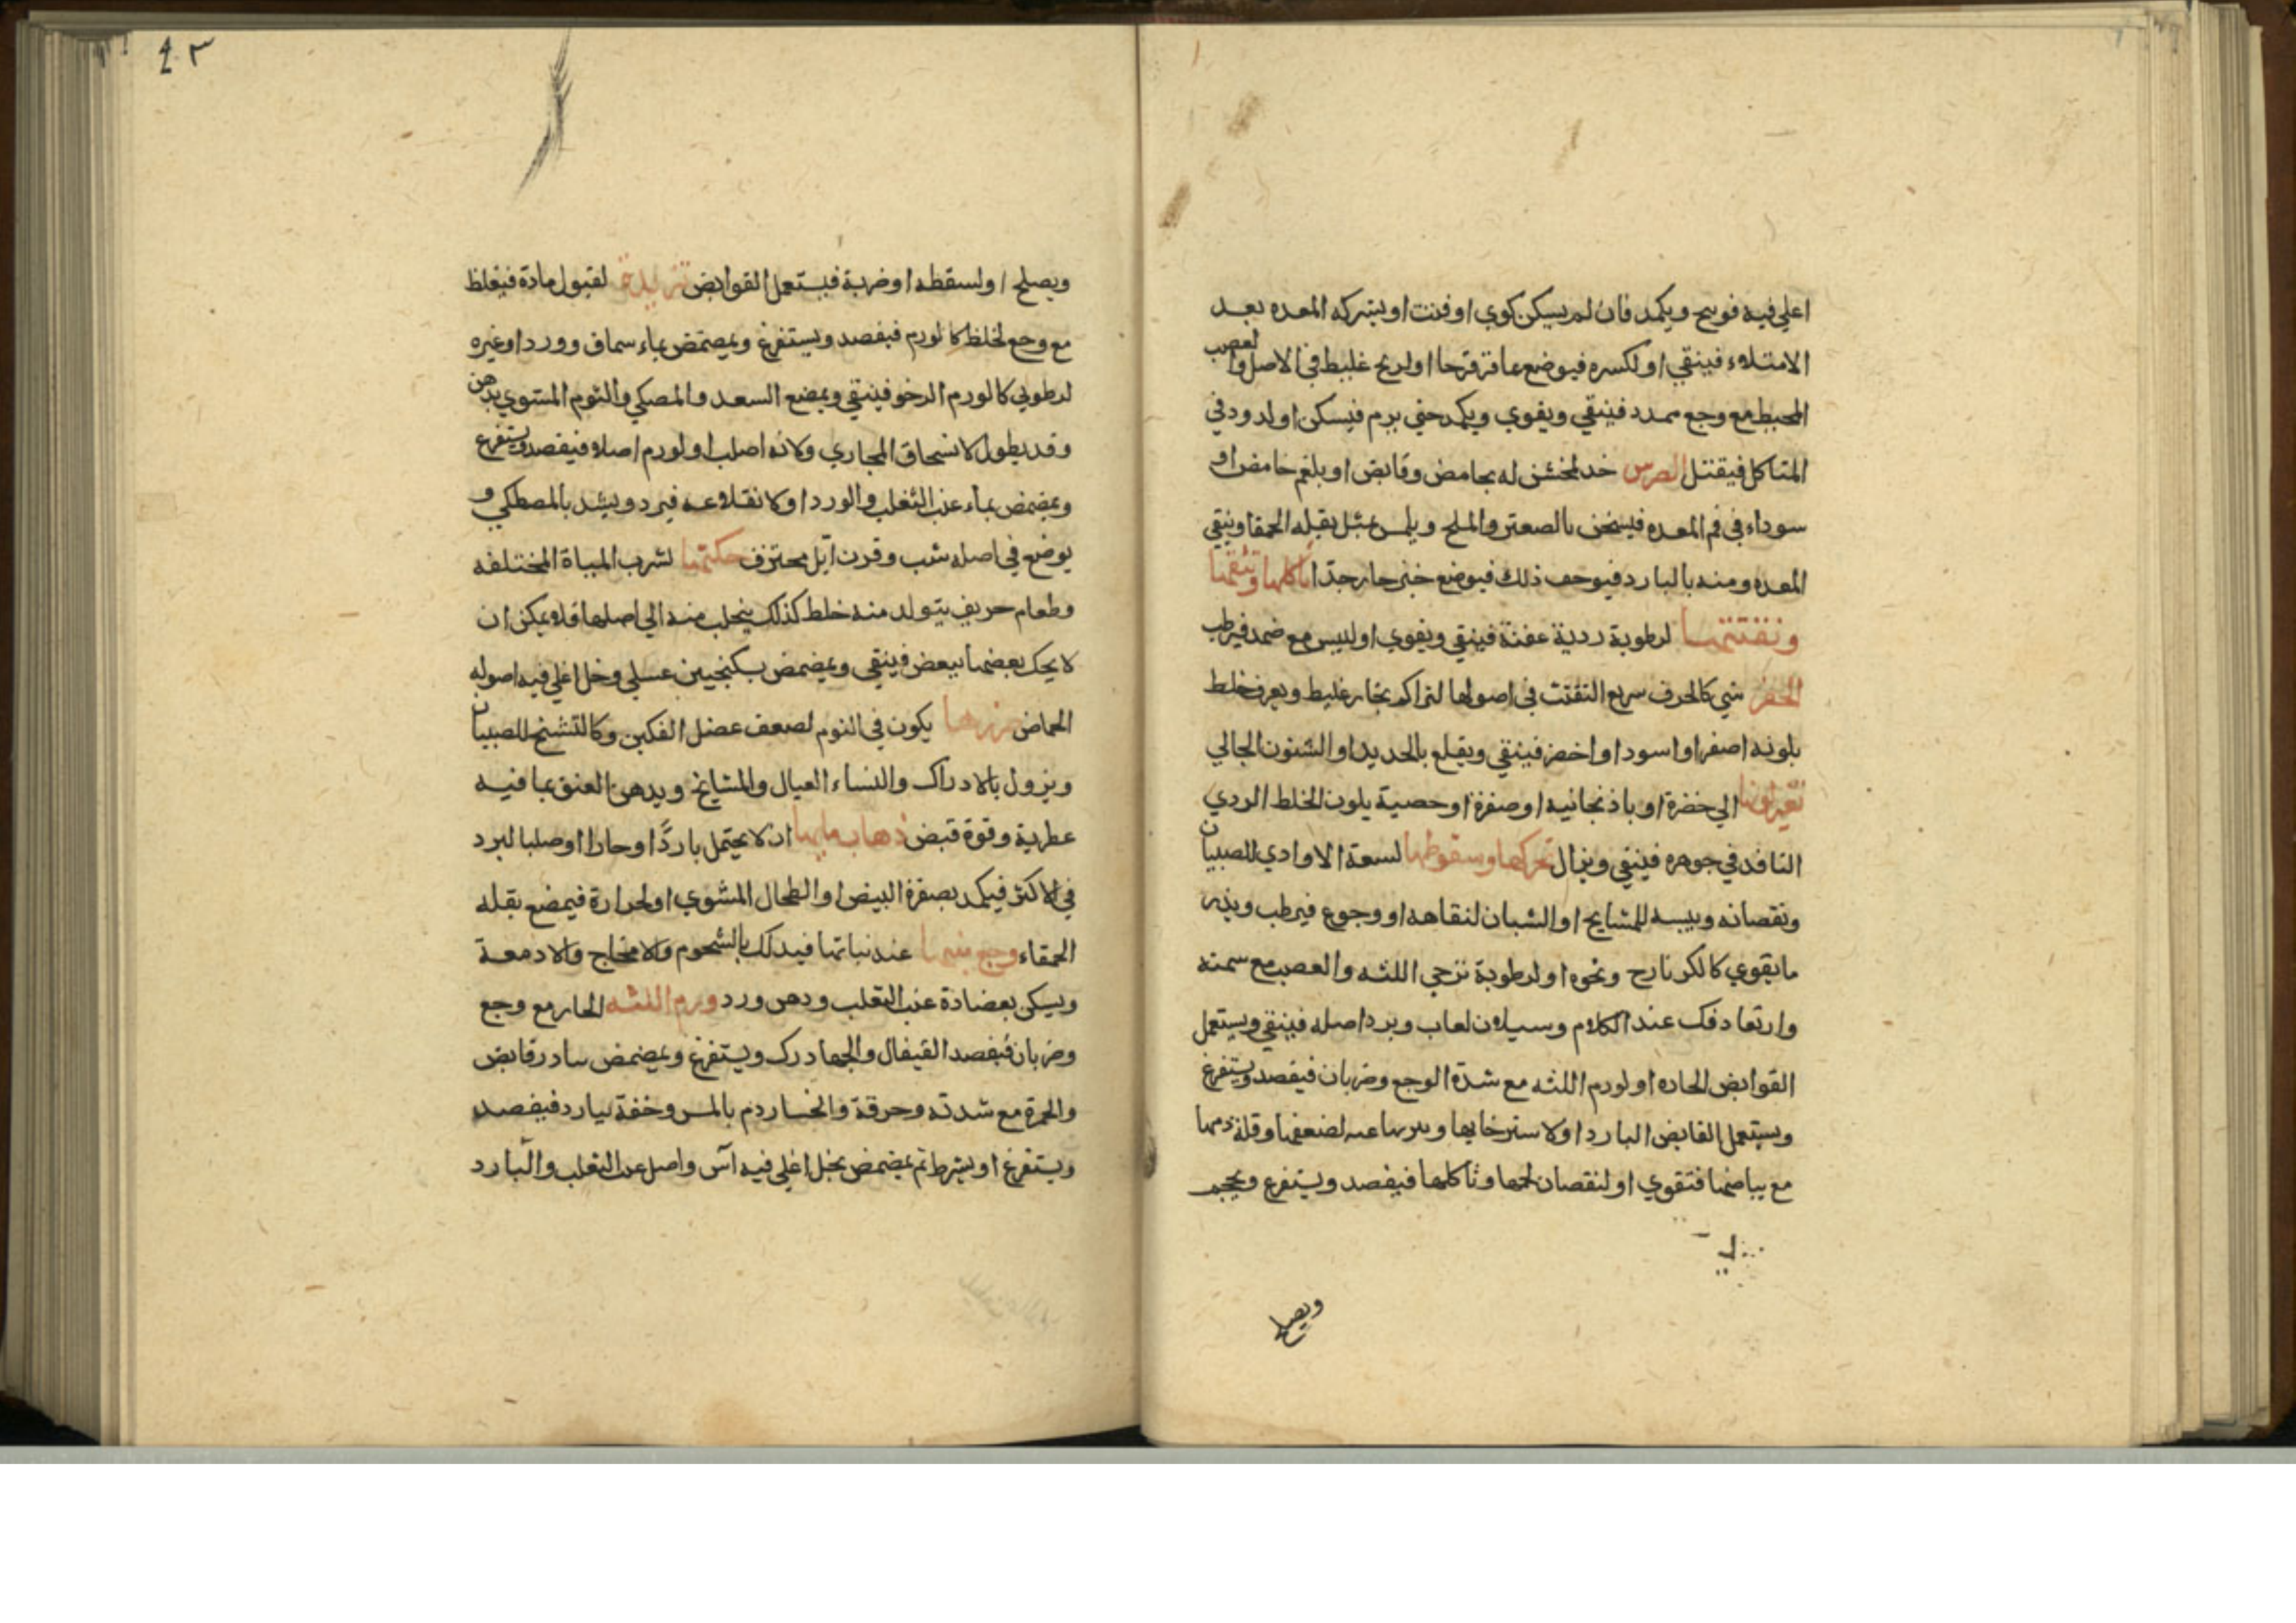 اعلي فيه فوسح ويكمد فان لم يسكن كوي او فتت او بشركه المعده بعد
الامتلاء فينقي او لكسره فيوضع عاقرقرحا او لريح غليظ في الاصل والعصب
المحيط مع وجع ممدد فينقي ويقوي ويكمد حتي يرم فيسكن او لدود في
المتاكل فيقتل الضرس خدر لمخشن له بحامض وقابض او بلغم حامض او
سوداء في فم المعده فيسخن بالصعتر والملح ويلمس بمثل بقله الحمقا وينقي
المعده ومنه بالبارد فيوجب ذلك فيوضع خبز حار جدا تاكلها وتثقبها
وتفتتها لرطوبة رديه عفنة فينقي ويقوي او لليبس مع ضمد فيرطب
الحفر شي كالحرف سريع التفتت في اصولها لتراكم بخار غليظ ويعرف خلط
بلونه اصفر او اسود او اخضر فينقي ويقلع بالحديد او السنون الجالي
تغير لونها الي خضرة او باذنجانيه او صفرة او حصية يلون الخلط الردي
النافد في جوهره فينقي ويزال تحركها وسقوطها لسعة الاوادي للصبيان
ونقصانه ويبسه للمشايخ او الشبان لنقاهه او وجوع فيرطب ويدبر
مايقوي كالكرنارح ونحوه او لرطوبة ترخي اللثه والعصب مع سمنه
وارتعاد فك عند الكلام وسيلان لعاب وبرد اصله فينقي ويستعمل
القوابض الحاده او لورم اللثه مع شدة الوجع وضربان فيفصد ويستفرغ
ويستعمل القابض البارد او لاسترخايها لضعفها وقلة دمها
مع بياضها فتقوي او لنقصان لحمها وتاكلها فيفصد ويستفرغ ويحجم
ويصلح
٤٠٣
ويصلح او لسقطه او ضربة فيستعمل القوابض تزيدة لقبول مادة فيغلظ
مع وجع لخلط كالورم فيفصد ويستفرغ ويمضمض بماء سماق وورد او غيره
لرطوبي كالورم الرخو فينقي ويمضغ السعد والمصكي والثوم المشوي بدهن
وقد يطول لانسحاق المجاري ولانه اصلب او لورم اصله فيفصد ويستفرغ
ويمضمض بماء عنب الثعلب والورد او لانقلاعه فيرد ويشد بالمصطكي و
يوضع في اصله شب وقرن ايل محترق حكتها لشرب المياة المختلفه
وطعام حريف يتولد منه خلط كذلك ينجلب منه الي اصلها فلا يمكن ان
لا يحك بعضها ببعض فينقي ويمضمض بسكنجبين عسلي وخل اغلي فيه اصوله
الحماض صريرها يكون في النوم لضعف عضل الفكين وكالتشنج للصبيان
ويزول بالادراك والنساء العيال والمشايخ ويدهن العنق بما فيه
عطرية وقوة قبض ذهاب مايها ان لا يحتمل باردًا او حارا او صلبا لبرد
في الاكثر فيكمد بصفرة البيض او الطحال المشوي او لحرارة فيمضغ بقله
الحمقاء وجع منبتها عند نباتها فيدلك بالشحوم والامخاج والادمغة
ويسكن بعضادة عنب الثعلب ودهن ورد ورم اللثه الحار مع وجع
وضربان فيفصد القيفال والجهاردرك ويستفرغ ويمضمض بارد قابض
والحمرة مع شدته وحرقة وانحسار دم بالمس وخفة بيارد فيفصد
ويستفرغ او يشرط ثم يمضمض بخل اغلي فيه آس واصل عنب الثعلب والبارد